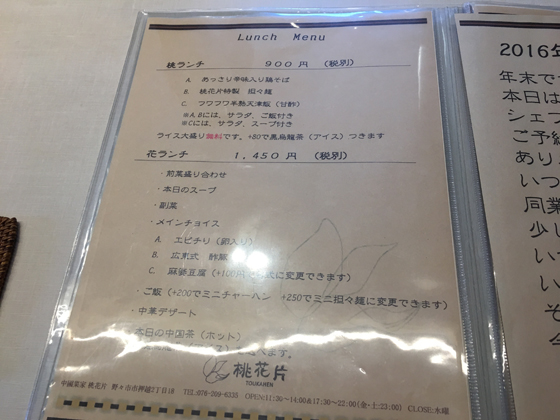 Lunch Menu
桃ランチ 900円 (税別)
A あっさり辛味入り鶏そば
B. 桃花片特製 担々麺
C フワフワ半熟天津飯(甘酢)
※A,Bには、サラダ、ご飯付き
※Cには、サラダ、スープ付き
ライス大盛り無料です。+80で黒烏龍茶(アイス)つきます
花ランチ 1,450円 (税別)
・前菜盛り合わせ
・本日のスープ
・副菜
・メインチョイス
A. エビチリ(卵入り)
B. 広東式 酢豚
C. 麻婆豆腐(+100円 に変更できます)
・ご飯(+200でミニチャーハン +250でミニ担々麺に変更できます)
・中華デザート
・本日の中国茶(ホット)
桃花片
TOUKAHEN
中國菜家 桃花片 野々市市押越2丁目18 TEL:076-209-6335 OPEN:11:30~14:00&17:30~22:00(金・土23:00) CLOSE:水曜
2016年
年末で
本日は
シェフ
ご予
あり
いつ
同業
少し
い
い
そ